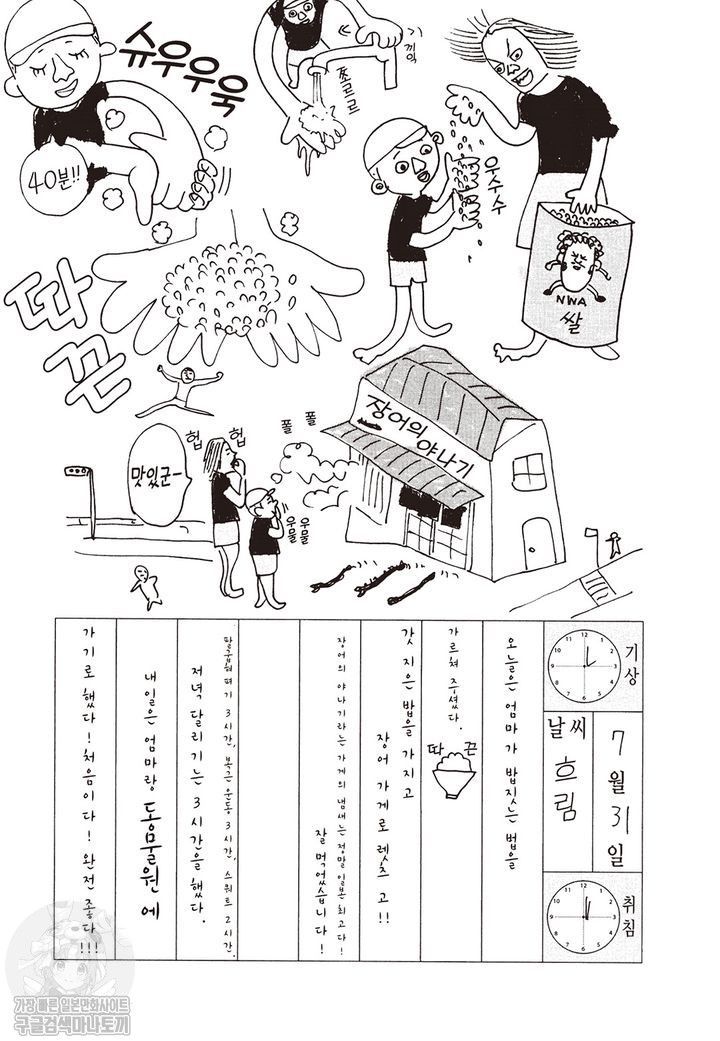 기끽
쪼르르
슈우우욱
40분!!
우수수
NWA
쌀
따
끈
장어의
야나기
폴 폴
헙 헙
맛있군~
우물
우물
기상
7월 31일
날씨
흐림
취침
오늘은 엄마가 밥짓는 법을
가르쳐 주셨다.
따 끈
갓 지은 밥을 가지고
장어 가게로 렛츠 고!!
장어의 야나기라는 가게의 냄새는 정말 일본 최고다!
잘 먹었습니다!
팔굽혀펴기 3시간, 복근 운동 3시간, 스쿼트 2시간,
저녁 달리기는 3시간을 했다.
내일은 엄마랑 동물원에
가기로 했다! 처음이다! 완전 좋다!!!
가장 빠른 일본만화사이트
구글검색마나토끼